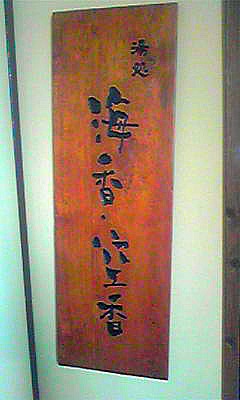 湯処
海香・空香